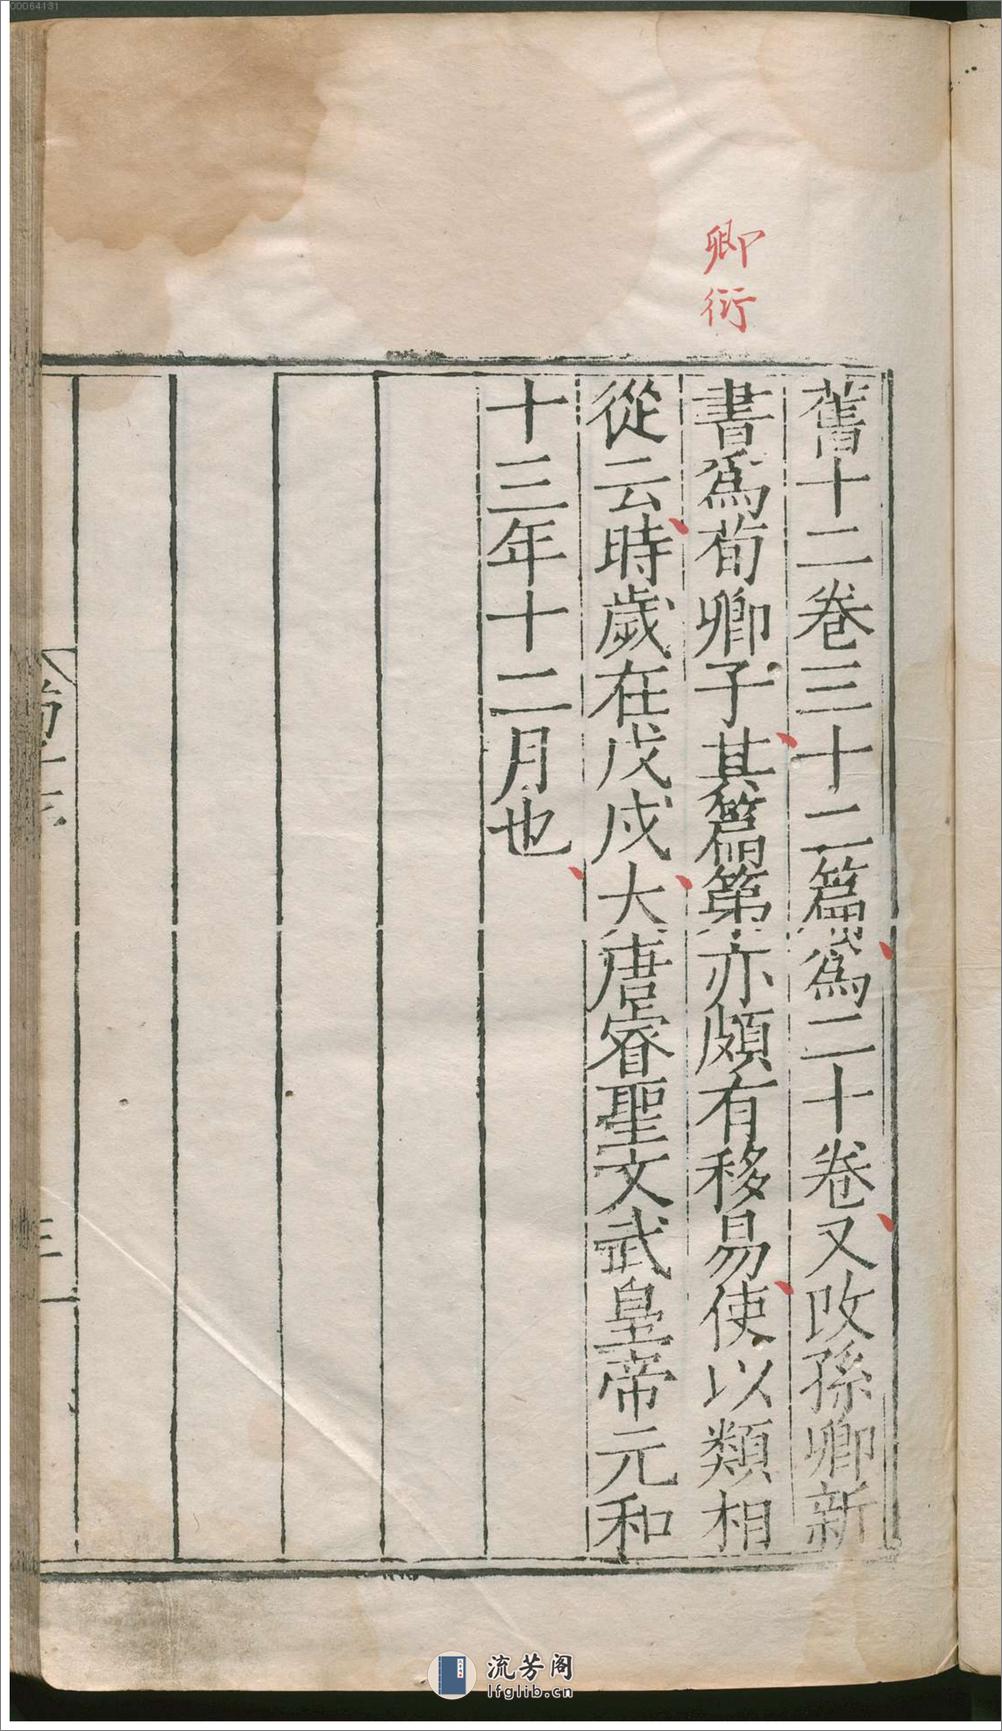 00064131
卿衍
舊十二卷三十二篇爲二十卷又改孫卿新
書爲荀卿子其篇第亦頗有移易使以類相
從云時歲在戊戌大唐睿聖文武皇帝元和
十三年十二月也
三
流芳阁
lfglib.cn